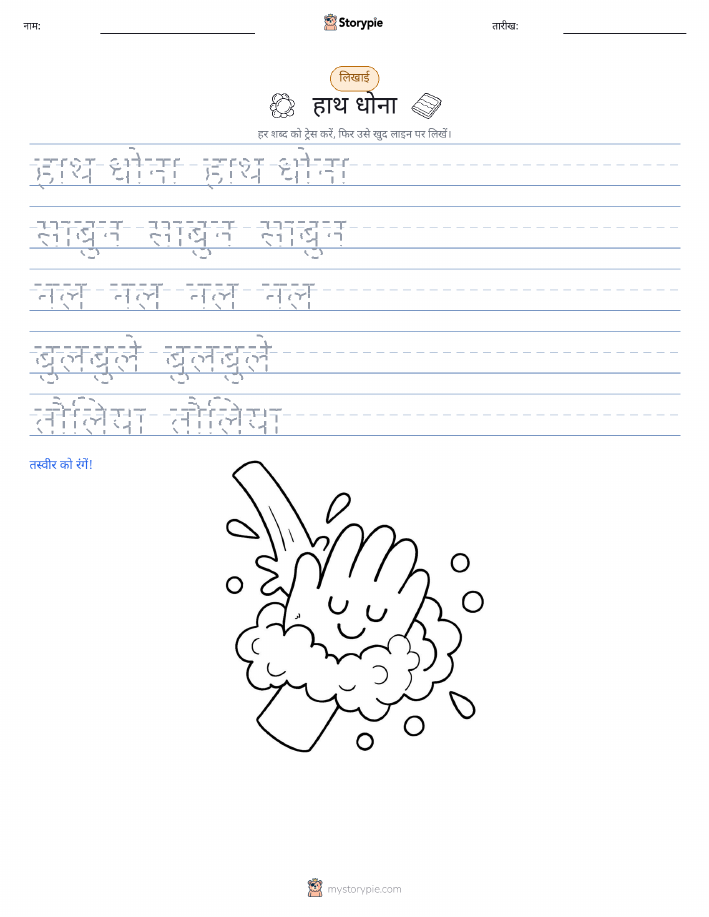 नाम:
Storypie
तारीख:
लिखाई
हाथ धोना
हर शब्द को ट्रेस करें, फिर उसे खुद लाइन पर लिखें।
हाथ धोना हाथ धोना
साबुन साबुन साबुन
नल नल नल नल
बुलबुले बुलबुले
तौलिया तौलिया
तस्वीर को रंगें!
mystorypie.com